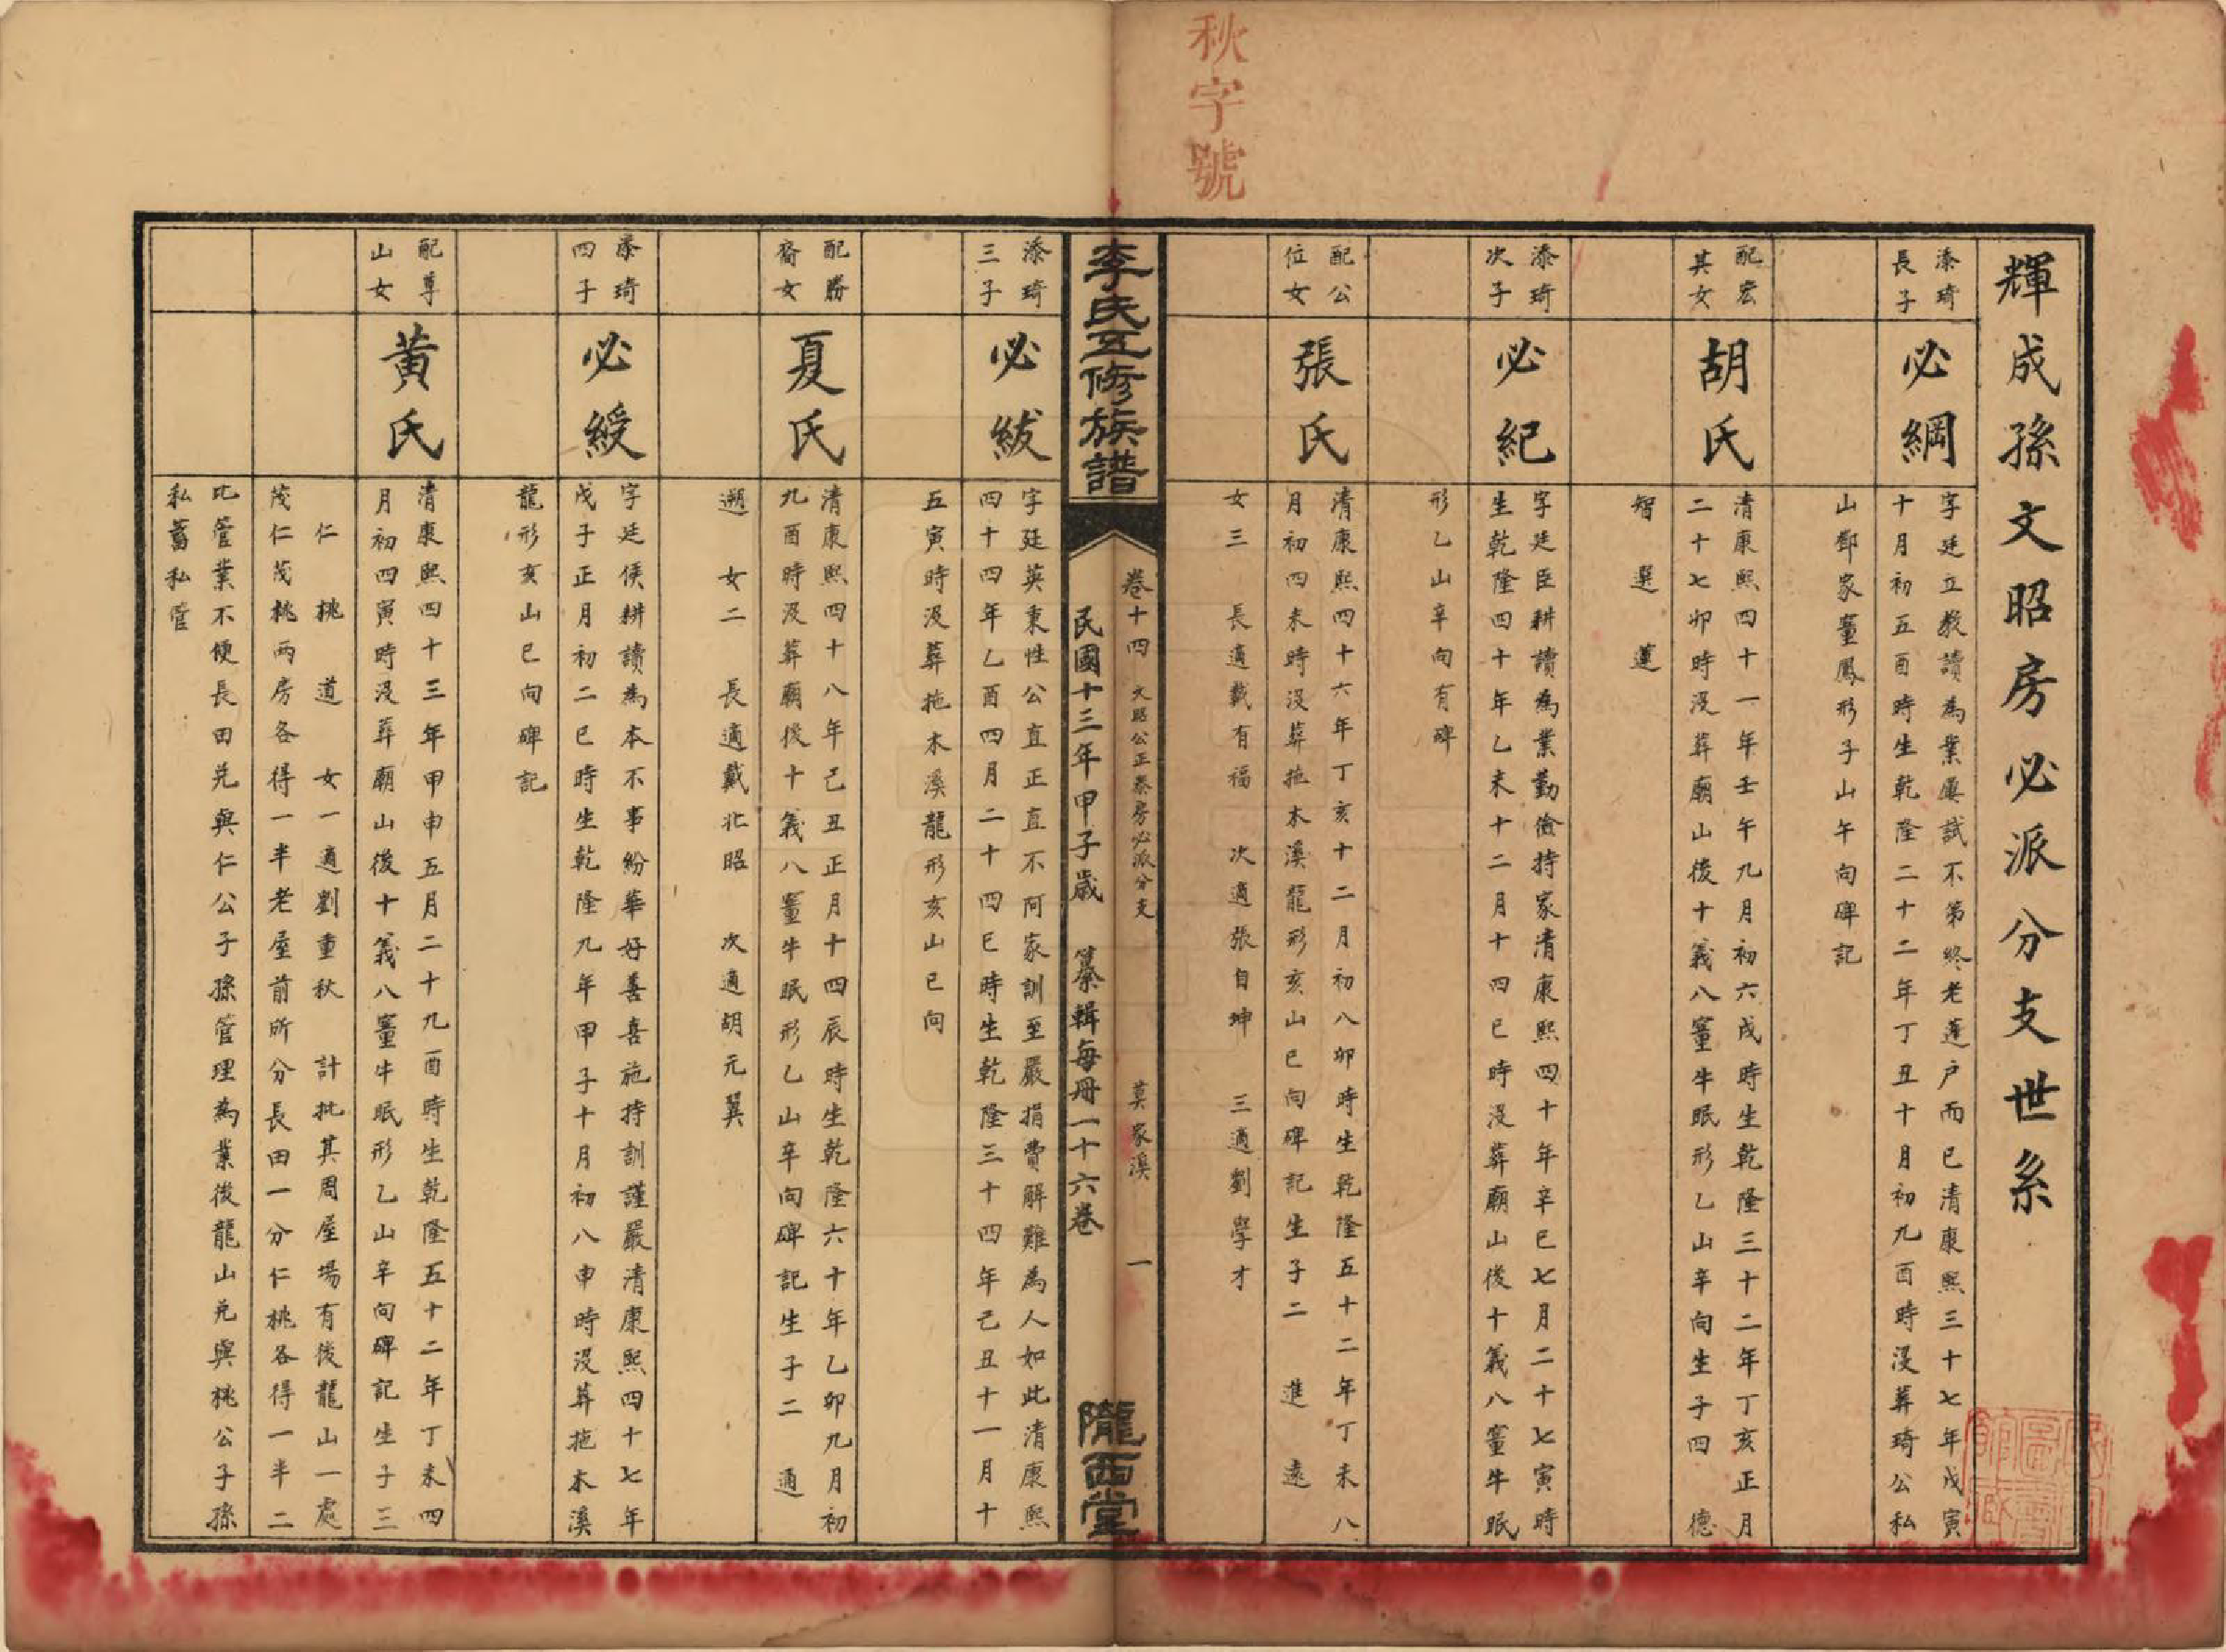 秋字號
輝成孫文昭房必派分支世系
添琦
長子
必綱
字廷立教讀為業屢試不第終老蓬户而已清康熙三十七年戊寅
十月初五酉時生乾隆二十二年丁丑十月初九酉時没葬琦公私
山鄧家薹鳳形子山午向碑記
配宏
其女
胡氏
清康熙四十一年壬午九月初六戌時生乾隆三十二年丁亥正月
二十七卯時没葬廟山後十義八薹牛眠形乙山辛向生子四 德
智 選 蓮
添琦
次子
必紀
字廷臣耕讀為業勤儉持家清康熙四十年辛巳七月二十七寅時
生乾隆四十年乙未十二月十四巳時没葬廟山後十義八薹牛眠
形乙山辛向有碑
配公
位女
張氏
清康熙四十六年丁亥十二月初八卯時生乾隆五十二年丁未八
月初四未時没葬拖木溪龍形亥山巳向碑記生子二 進 遠
女三 長適戴有福 次適張自坤 三適劉學才
李氏五修族譜
卷十四 文昭公正泰房必派分支 莫家溪 一
民國十三年甲子歲 纂輯每冊一十六卷
隴西堂
添琦
三子
必紱
字廷英秉性公直正直不阿家訓至嚴捐費解難為人如此清康熙
四十四年乙酉四月二十四巳時生乾隆三十四年己丑十一月十
五寅時没葬拖木溪龍形亥山巳向
配勝
裔女
夏氏
清康熙四十八年己丑正月十四辰時生乾隆六十年乙卯九月初
九酉時没葬廟後十義八薹牛眠形乙山辛向碑記生子二 通
遡 女二 長適戴北昭 次適胡元翼
添琦
四子
必綬
字廷侯耕讀為本不事紛華好善喜施持訓謹嚴清康熙四十七年
戊子正月初二巳時生乾隆九年甲子十月初八申時没葬拖木溪
龍形亥山巳向碑記
配尊
山女
黄氏
清康熙四十三年甲申五月二十九酉時生乾隆五十二年丁未四
月初四寅時没葬廟山後十義八薹牛眠形乙山辛向碑記生子三
仁 桃 道 女一適劉重秋 計批其周屋場有後龍山一處
茂仁茂桃兩房各得一半老屋前所分長田一分仁桃各得一半二
比管業不便長田兑與仁公子孫管理為業後龍山兑與桃公子孫
私蓄私管